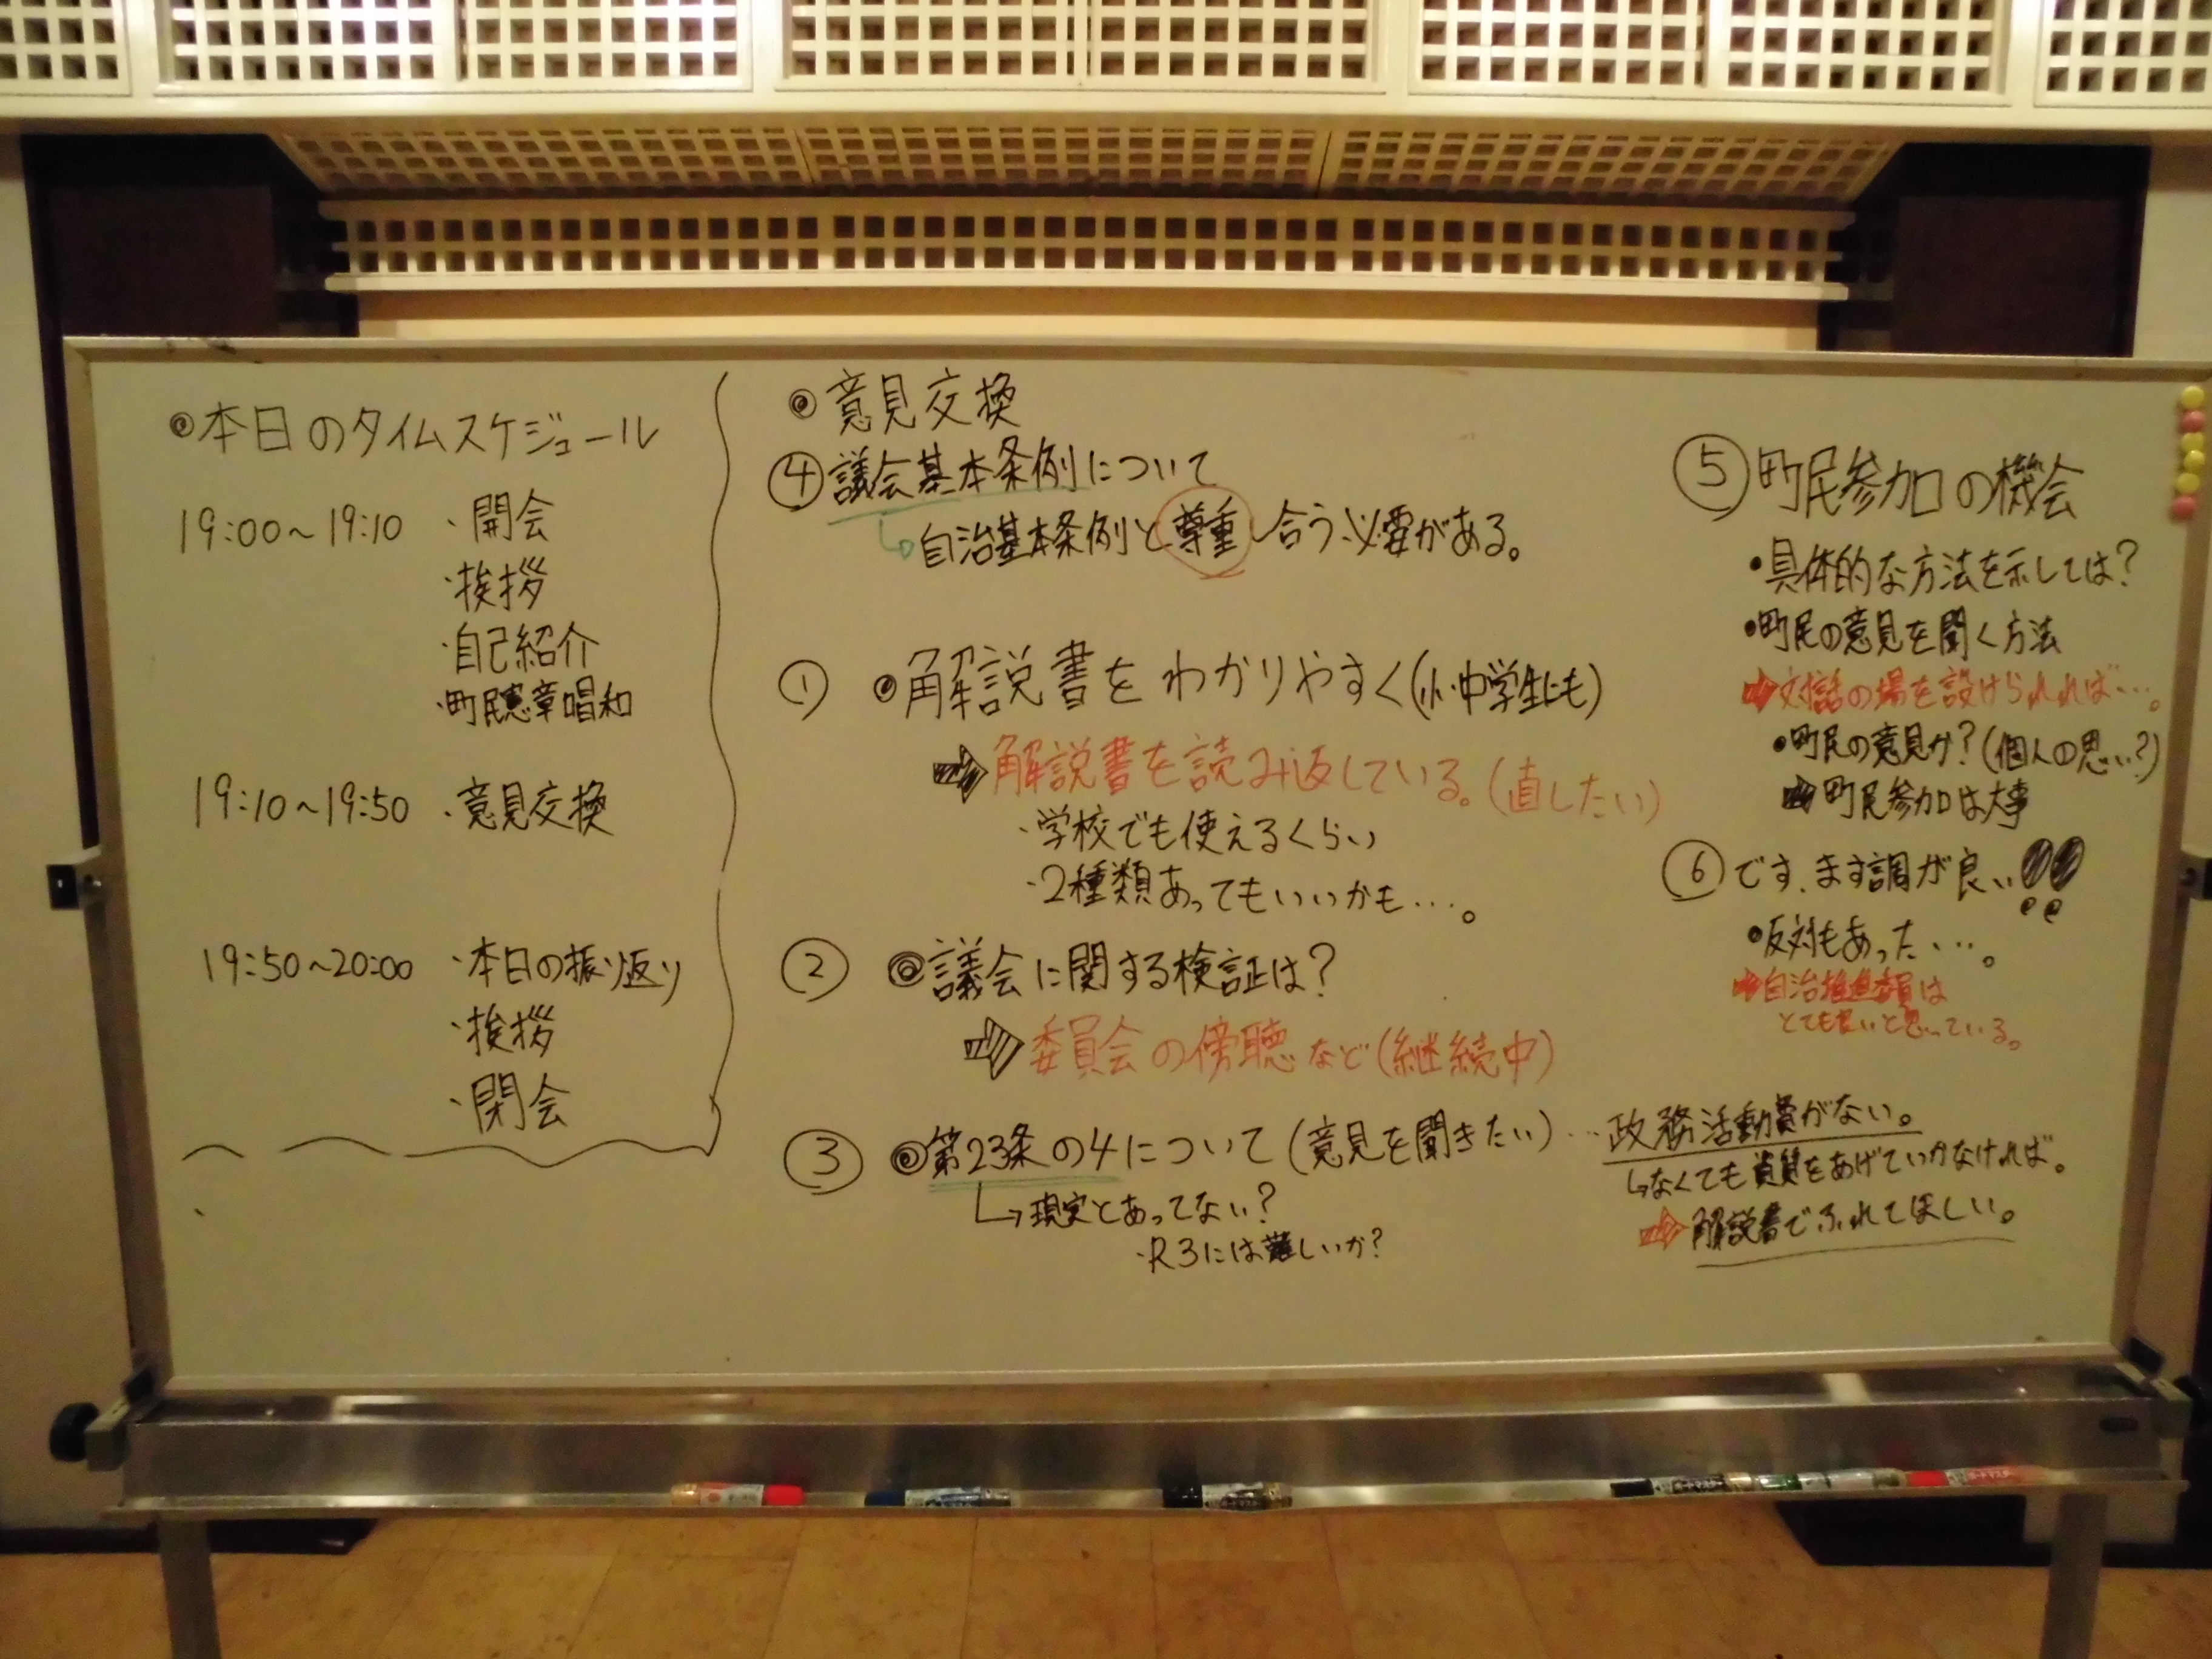 ◎本日のタイムスケジュール
19:00～19:10 ・開会
・挨拶
・自己紹介
・町民憲章唱和
19:10～19:50 ・意見交換
19:50～20:00 ・本日の振り返り
・挨拶
・閉会
◎意見交換
④議会基本条例について
↳自治基本条例と尊重し合う必要がある。
① ◎解説書をわかりやすく(小・中学生にも)
⇨解説書を読み返している。(直したい)
・学校でも使えるくらい
・2種類あってもいいかも…。
② ◎議会に関する検証は?
⇨委員会の傍聴など(継続中)
③ ◎第23条の4について(意見を聞きたい)…政務活動費がない。
↳現実とあってない?
・R3には難しいか?
↳なくても資質をあげていかなければ。
⇨解説書でふれてほしい。
⑤町民参加の機会
・具体的な方法を示しては?
・町民の意見を聞く方法
⇨対話の場を設けられれば…。
・町民の意見か?(個人の思い?)
⇨町民参加は大事
⑥です、ます調が良い!!
・反対もあった…。
⇨自治推進委員は
とても良いと思っている。